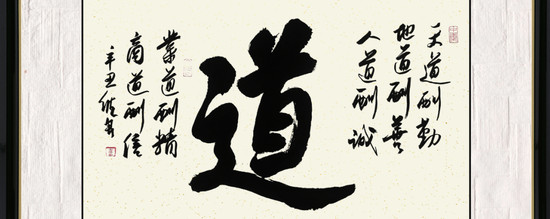 天道酬勤
地道酬善
人道酬诚
道
業道酬精
商道酬信
辛丑